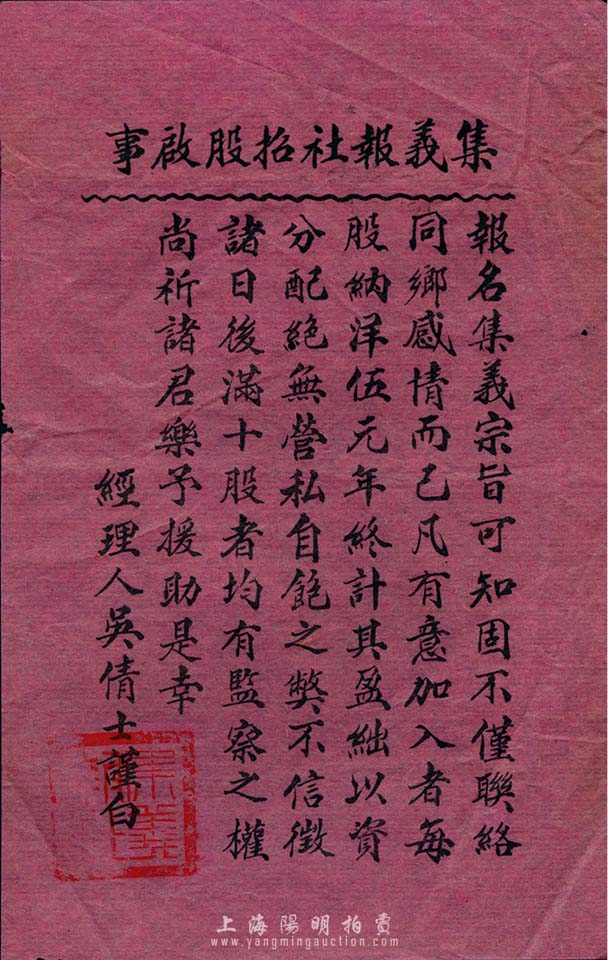 集義報社招股啟事
報名集義宗旨可知固不僅聯絡
同鄉感情而已凡有意加入者每
股納洋伍元年終計其盈絀以資
分配絕無營私自飽之弊不信徵
諸日後滿十股者均有監察之權
尚祈諸君樂予援助是幸
經理人吳倩士謹白
上海陽明拍賣
www.yangmingauction.com